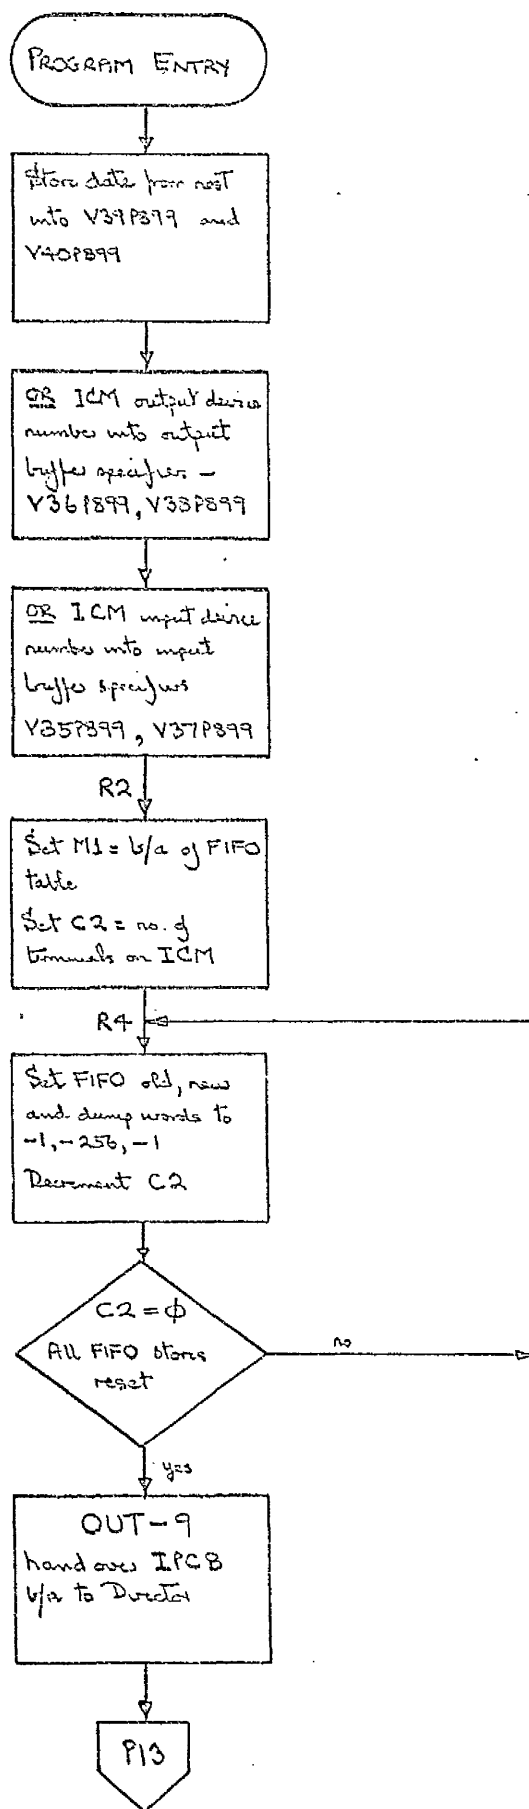 PROGRAM ENTRY
Store date from nest
into V39P899 and
V40P899
OR ICM output device
number into output
buffer specifiers –
V36P899, V38P899
OR ICM input device
number into input
buffer specifiers
V35P899, V37P899
R2
Set M1 = b/a of FIFO
table
Set C2 = no. of
terminals on ICM
R4
Set FIFO old, new
and dump words to
-1, -256, -1
Decrement C2
C2 = ϕ
All FIFO stores
reset
no
yes
OUT-9
hand over IPCB
b/a to Director
P13